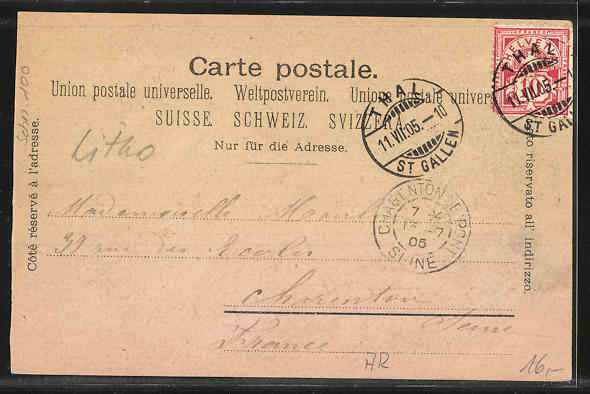 Carte postale.
Union postale universelle. Weltpostverein. Union postale univers
SUISSE. SCHWEIZ. SVIZZER
Nur für die Adresse.
Côté réservé à l'adresse.
to riservato all' indirizzo.
FRANCO
HELVETIA
THAL
11.VII.05.-10
ST GALLEN
THAL
11.VII.05.-1
ST GAL
CHARENTON LE PONT
7
05
SEINE
Schw. 100
Litho
Mademoiselle
39 rue des Ecoles
Charenton
Seine
France
AR
16,-